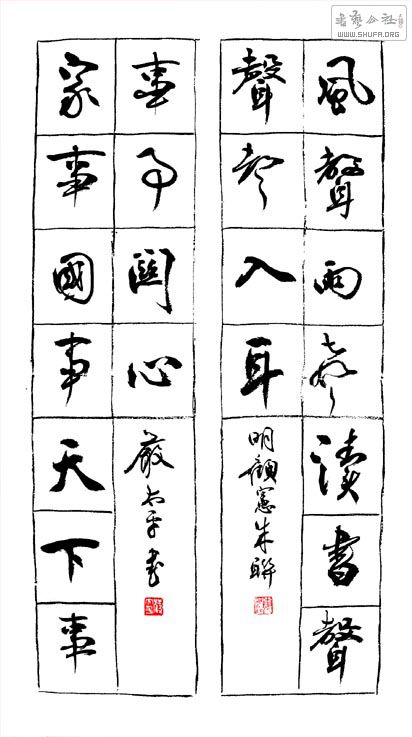 書藝公社
WWW.SHUFA.ORG
風聲雨聲讀書聲
聲聲入耳
明顧憲成聯
家事國事天下事
事事關心
嚴平書